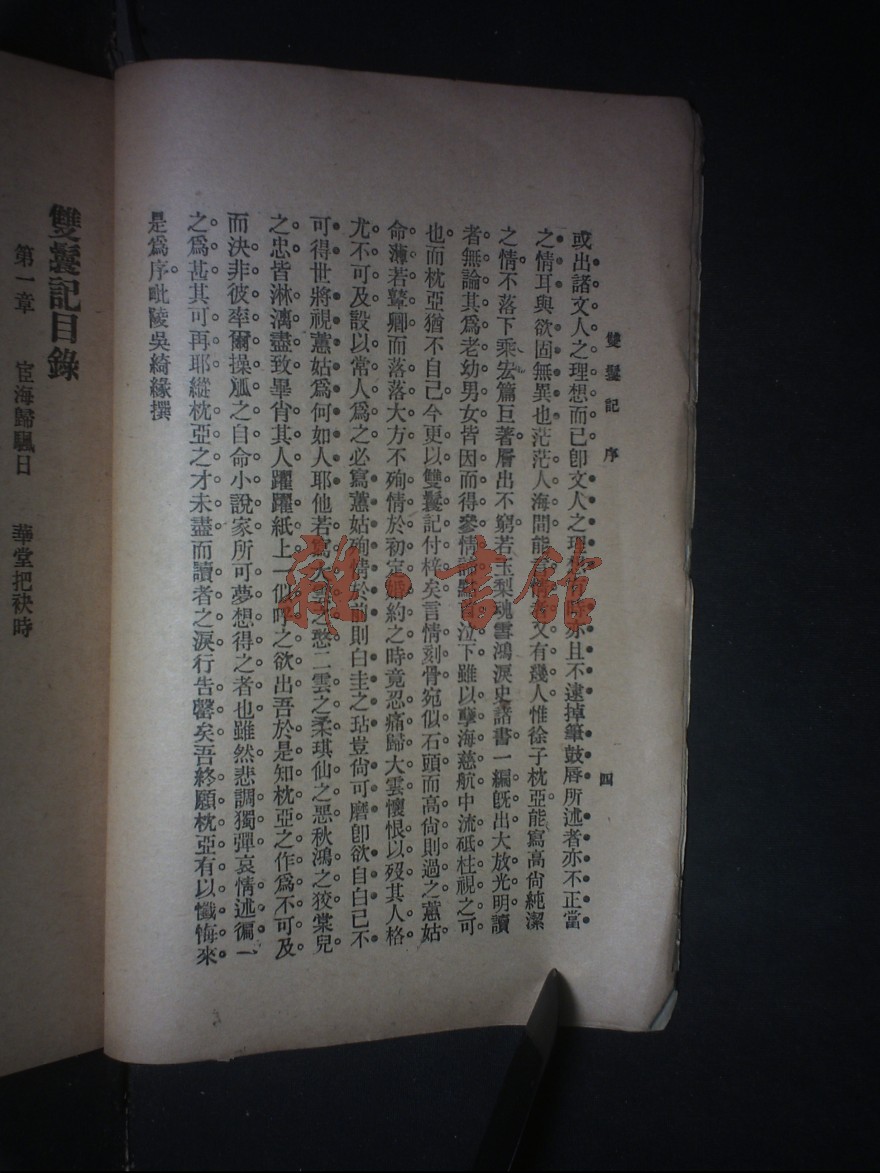 雙鬟記 序
四
或出諸文人之理想而已卽文人之理想亦且不逮掉筆鼓唇所述者亦不正當
之情耳與欲固無異也茫茫人海間能言情者又有幾人惟徐子枕亞能寫高尙純潔
之情不落下乘宏篇巨著層出不窮若玉梨魂雪鴻淚史諸書一編旣出大放光明讀
者無論其爲老幼男女皆因而得參情諦點首泣下雖以孽海慈航中流砥柱視之可
也而枕亞猶不自己今更以雙鬟記付梓矣言情刻骨宛似石頭而高尙則過之蕙姑
命薄若顰卿而落落大方不殉情於初定婚約之時竟忍痛歸大雲懷恨以歿其人格
尤不可及設以常人爲之必寫蕙姑殉情於前則白圭之玷豈尙可磨卽欲自白已不
可得世將視蕙姑爲何如人耶他若寫大雲之憨二雲之柔琪仙之惡秋鴻之狡棠兒
之忠皆淋漓盡致畢肖其人躍躍紙上一似呼之欲出吾於是知枕亞之作爲不可及
而決非彼率爾操觚之自命小說家所可夢想得之者也雖然悲調獨彈哀情述徧一
之爲甚其可再耶縱枕亞之才未盡而讀者之淚行告罄矣吾終願枕亞有以懺悔來
是爲序毗陵吳綺緣撰
雙鬟記目錄
第一章 宦海歸颿日 華堂把袂時
雜·書館